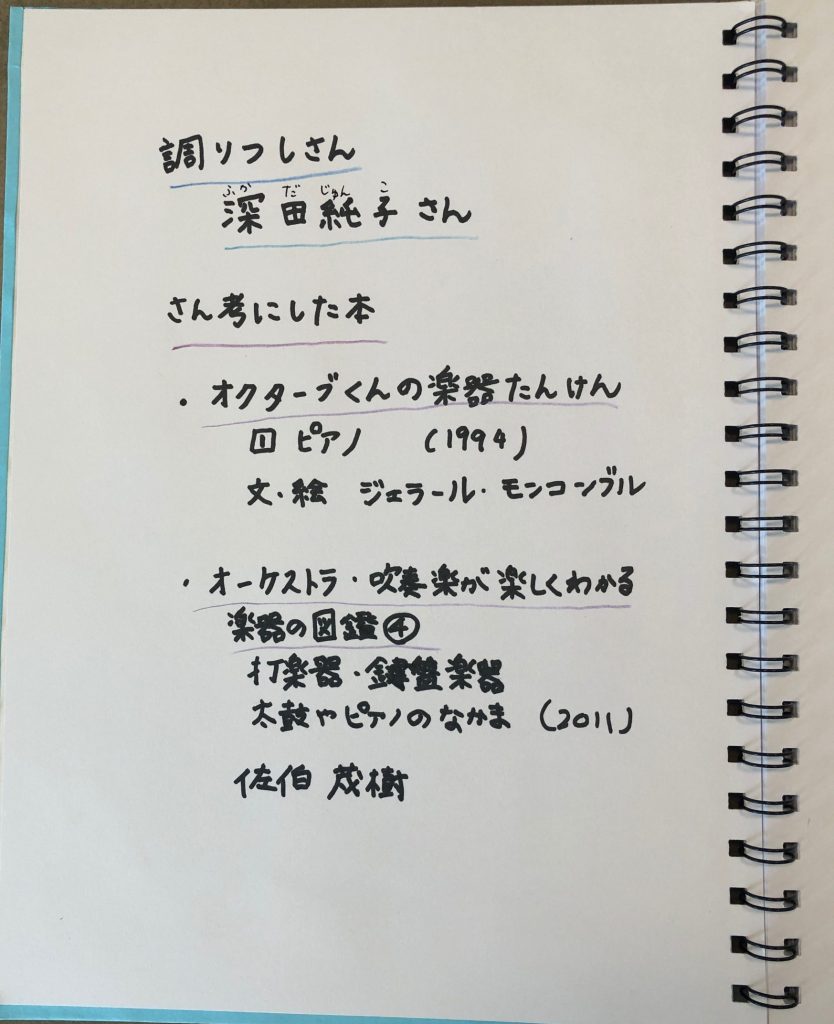 調りつしさん
深田純子さん
ふか だ じゅん こ
さん考にした本
・オクターブくんの楽器たんけん
1 ピアノ (1994)
文・絵 ジェラール・モンコンブル
・オーケストラ・吹奏楽が楽しくわかる
楽器の図鑑④
打楽器・鍵盤楽器
太鼓やピアノのなかま (2011)
佐伯 茂樹